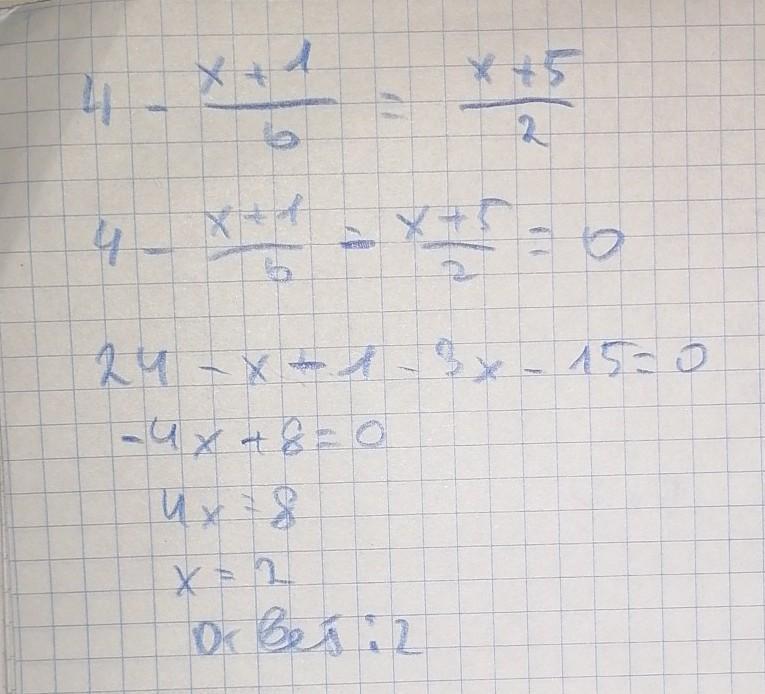 4 - (x + 1)/6 = (x + 5)/2
4 - (x + 1)/6 - (x + 5)/2 = 0
24 - x - 1 - 3x - 15 = 0
-4x + 8 = 0
4x = 8
x = 2
Ответ: 2